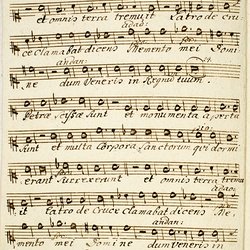 et omnis terra tremuit Latro de Cru
adag:
ce Clamabat dicens Memento mei Domi
andan:
ne dum Veneris in Regnum tuum.
Petræ scissæ sunt et monumenta aperta
sunt et multa Corpora Sanctorum qui dormi
erant Surrexerunt et omnis terra tremu
adag:
it Latro de Cruce Clamabat dicens Me,
andan:
mento mei Domine dum Veneris in